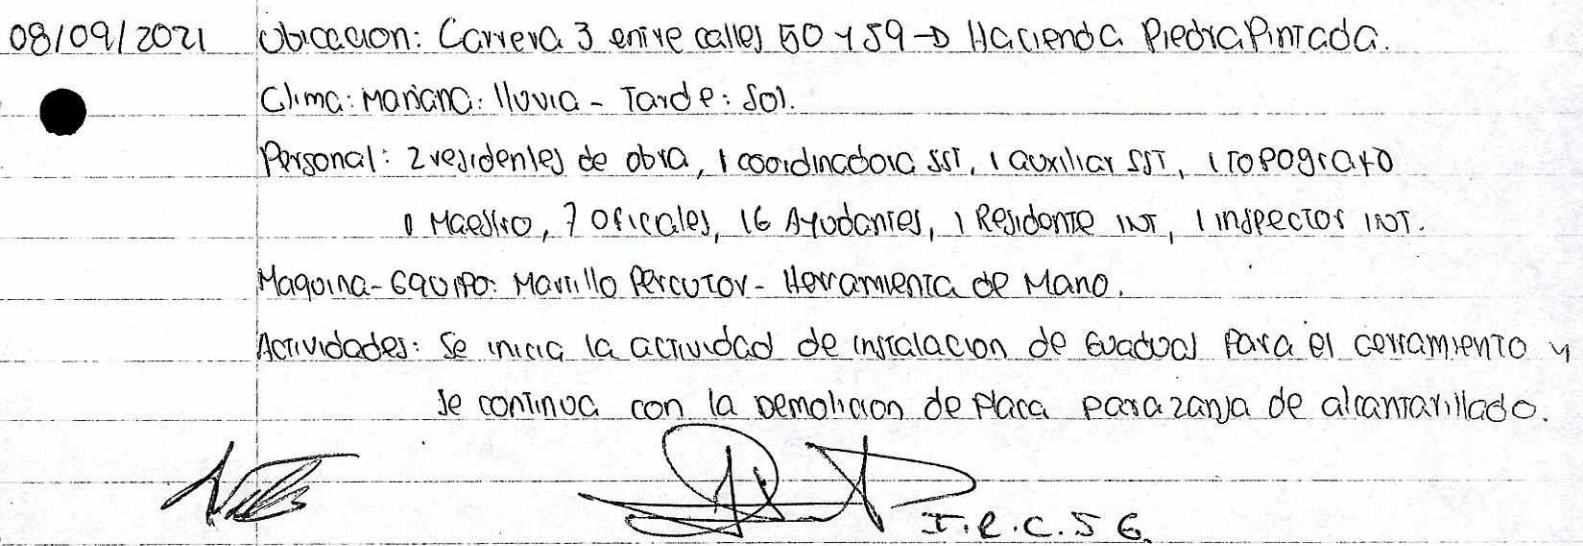 08/09/2021 Ubicacion: Carrera 3 entre calles 50 y 59 → Hacienda Piedra Pintada.
Clima: Mañana: lluvia - Tarde: Sol.
Personal: 2 residentes de obra, 1 coordinadora SST, 1 auxiliar SST, 1 Topografo
1 Maestro, 7 oficiales, 16 Ayudantes, 1 Residente INT, 1 inspector INT.
Maquina-Equipo: Martillo Percutor - Herramienta de Mano.
Actividades: Se inicia la actividad de instalacion de Guadual para el cerramiento y
se continua con la Demolicion de placa para zanja de alcantarillado.
I.R.C.S G.